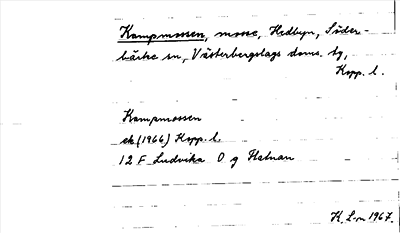 Kampmossen, mosse, Hedbyn, Söder-
bärke sn, Västerbergslags doms. tg,
Kopp. l.
Kampmossen
ek (1966) Kopp. l.
12 F Ludvika 0 g Flatnan
K. L-n 1967.